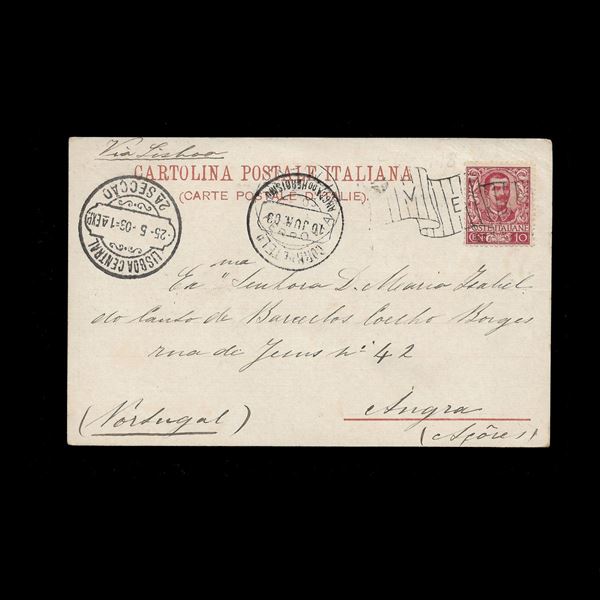 Via Lisboa
CARTOLINA POSTALE ITALIANA
(CARTE POSTALE D'ITALIE).
LISBOA CENTRAL
25-5-03-1 A EXP
2A SECÇÃO
CORRº E TELº
10 JUN. 03
ANGRA DO HEROISMO
M
E
POSTE ITALIANE
CEN. 10
Exma Senhora D. Maria Izabel
do Canto de Barcelos Coelho Borges
rua de Jesus nº 42
(Portugal)
Angra
(Açôres)